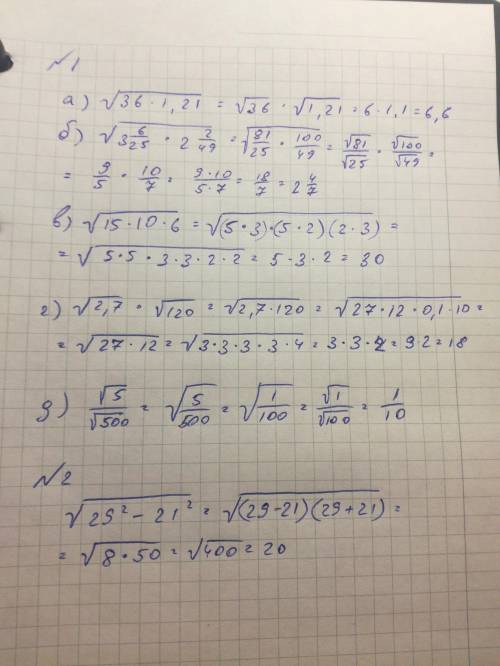 №1
а) √(36 · 1,21) = √36 · √(1,21) = 6 · 1,1 = 6,6
б) √(3 6/25 · 2 2/49) = √(81/25 · 100/49) = √81/√25 · √100/√49 =
= 9/5 · 10/7 = (9·10)/(5·7) = 18/7 = 2 4/7
в) √(15 · 10 · 6) = √((5 · 3) · (5 · 2)(2 · 3)) =
= √(5 · 5 · 3 · 3 · 2 · 2) = 5 · 3 · 2 = 30
г) √(2,7) · √120 = √(2,7 · 120) = √(27 · 12 · 0,1 · 10) =
= √(27 · 12) = √(3 · 3 · 3 · 3 · 4) = 3 · 3 · 2 = 9 · 2 = 18
д) √5/√500 = √(5/500) = √(1/100) = √1/√100 = 1/10
№2
√(29² - 21²) = √((29-21)(29+21)) =
= √(8 · 50) = √400 = 20